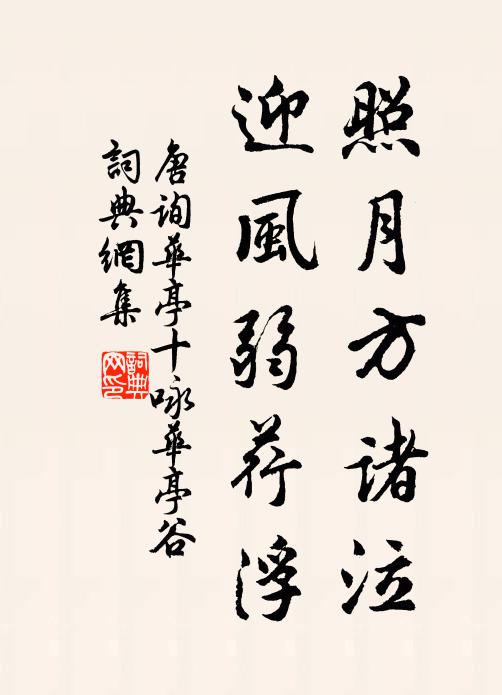 照月方諸泣
迎風弱荇浮
唐詢華亭十咏華亭谷
詞典網集
詞典
网印